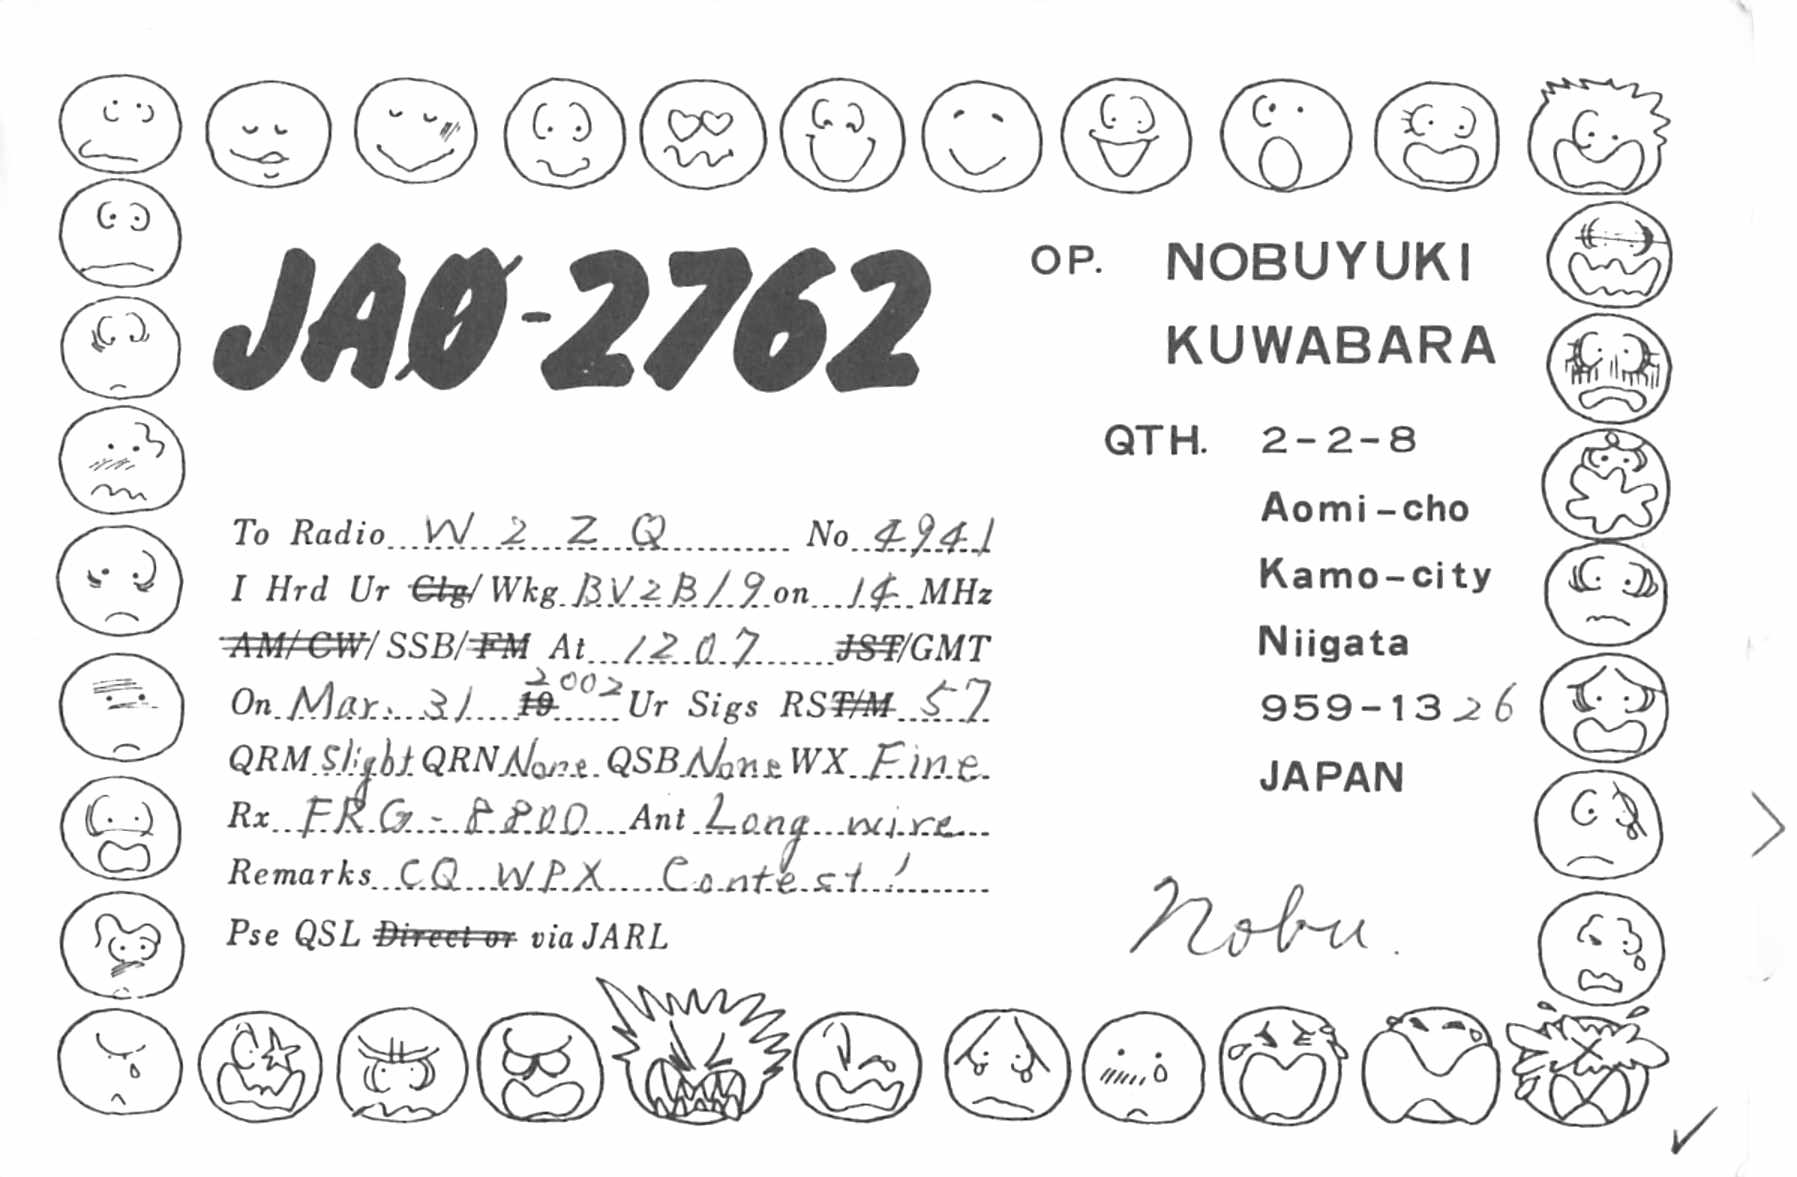 JAØ-2762
OP. NOBUYUKI
KUWABARA
QTH. 2-2-8
Aomi-cho
Kamo-city
Niigata
959-1326
JAPAN
To Radio W2ZQ No 4941
I Hrd Ur Clg/Wkg BV2B/9 on 14 MHz
AM/CW/SSB/FM At 1207 JST/GMT
On Mar. 31 19 2002 Ur Sigs RST/M 57
QRM Slight QRN None QSB None WX Fine
Rx FRG-8800 Ant Long wire
Remarks CQ WPX Contest!
Pse QSL Direct or via JARL
Nobu.